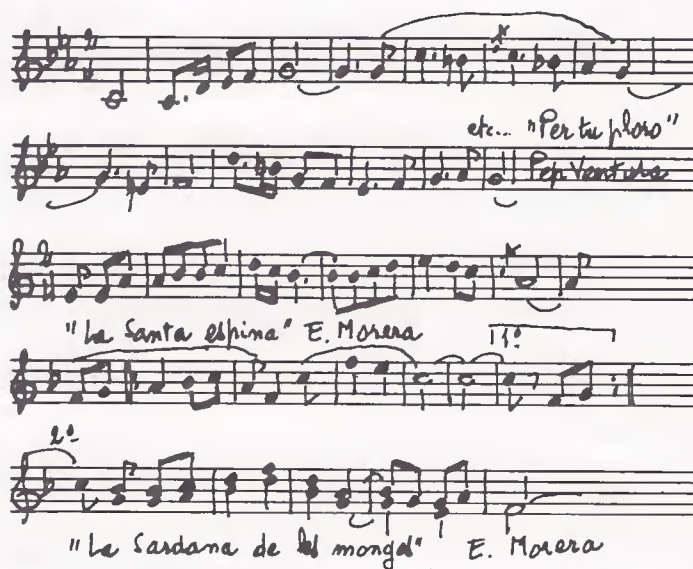 etc... "Per tu ploro"
Pep Ventura
"La Santa espina" E. Morera
1ª
2ª
"La Sardana de les monges" E. Morera